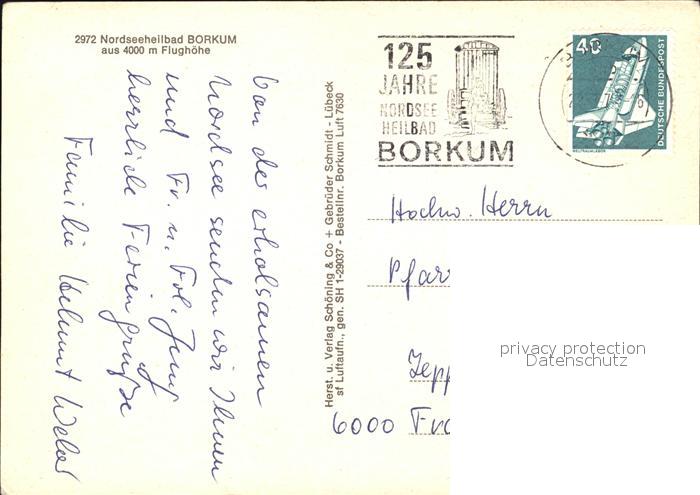 2972 Nordseeheilbad BORKUM
aus 4000 m Flughöhe
Von der erholsamen
Nordsee senden wir Ihnen
und Fr. u. Frl.
herrliche Feriengrüße
Familie Helmut Weber
Herst. u. Verlag Schöning & Co + Gebrüder Schmidt - Lübeck
sf Luftaufn., gen. SH 1-29037 - Bestellnr. Borkum Luft 7630
125
JAHRE
NORDSEE
HEILBAD
BORKUM
40
DEUTSCHE BUNDESPOST
WELTRAUMLABOR
Hochw. Herrn
Pfar
Zepp
6000 Fra
privacy protection
Datenschutz